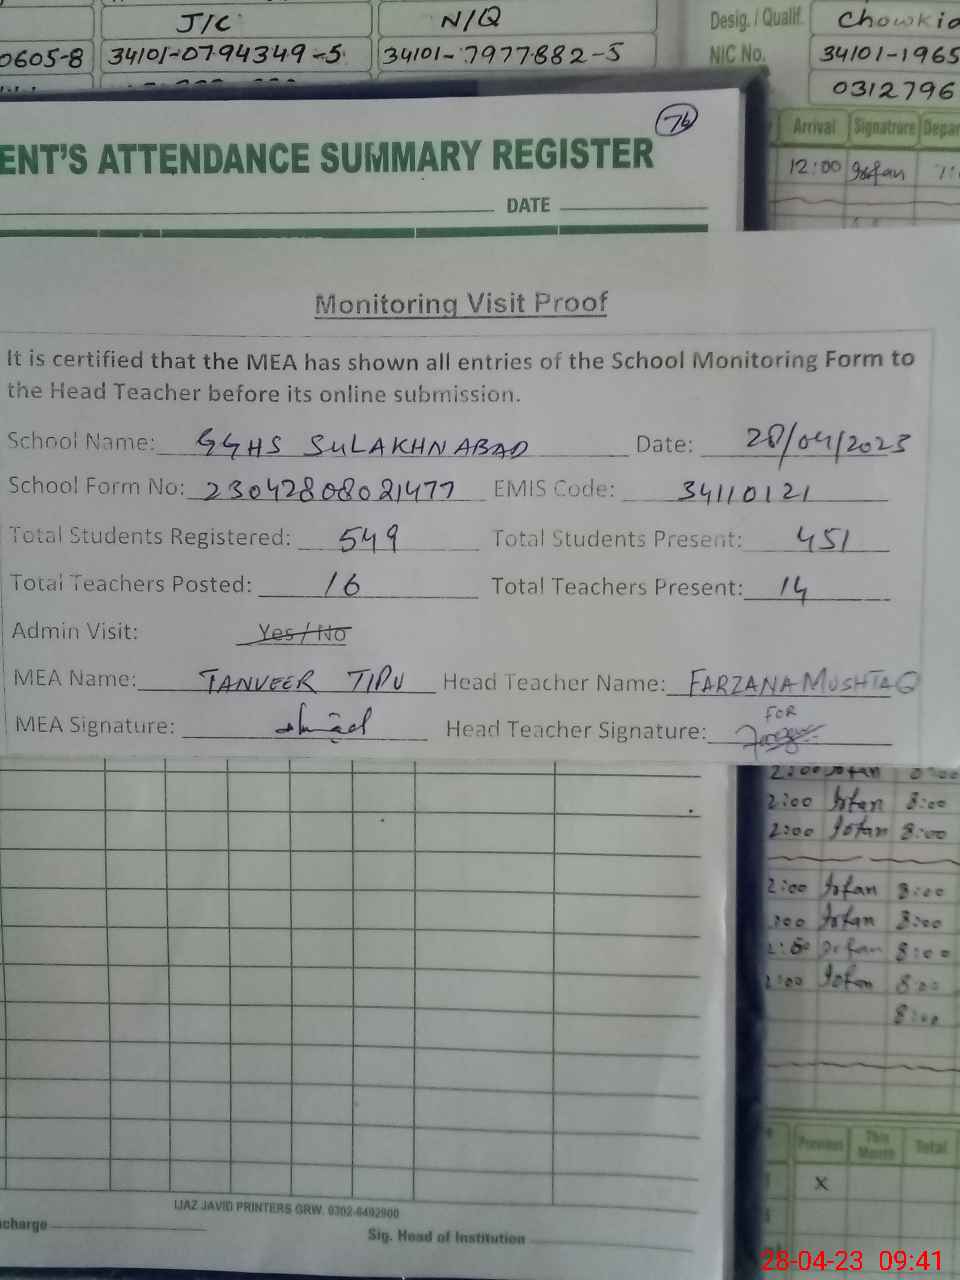 J/C N/Q
0605-8 34101-0794349-5 34101-7977882-5
Desig. / Qualif. Chowkid
NIC No. 34101-1965
0312796
76
ENT'S ATTENDANCE SUMMARY REGISTER
DATE
Arrival Signature Depar
12:00 Irfan
Monitoring Visit Proof
It is certified that the MEA has shown all entries of the School Monitoring Form to
the Head Teacher before its online submission.
School Name: GGHS SULAKHNABAD Date: 28/04/2023
School Form No: 23042808021477 EMIS Code: 34110121
Total Students Registered: 549 Total Students Present: 451
Total Teachers Posted: 16 Total Teachers Present: 14
Admin Visit: Yes / No
MEA Name: TANVEER TIPU Head Teacher Name: FARZANA MUSHTAQ
MEA Signature: Head Teacher Signature: FOR
2:00 Irfan 8:00
2:00 Irfan 8:00
2:00 Irfan 8:00
:00 Irfan 8:00
Irfan 8:00
2:00 Irfan 8:00
8:00
Previous This Month Total
x
IJAZ JAVID PRINTERS GRW. 0302-6492900
charge Sig. Head of Institution
28-04-23 09:41